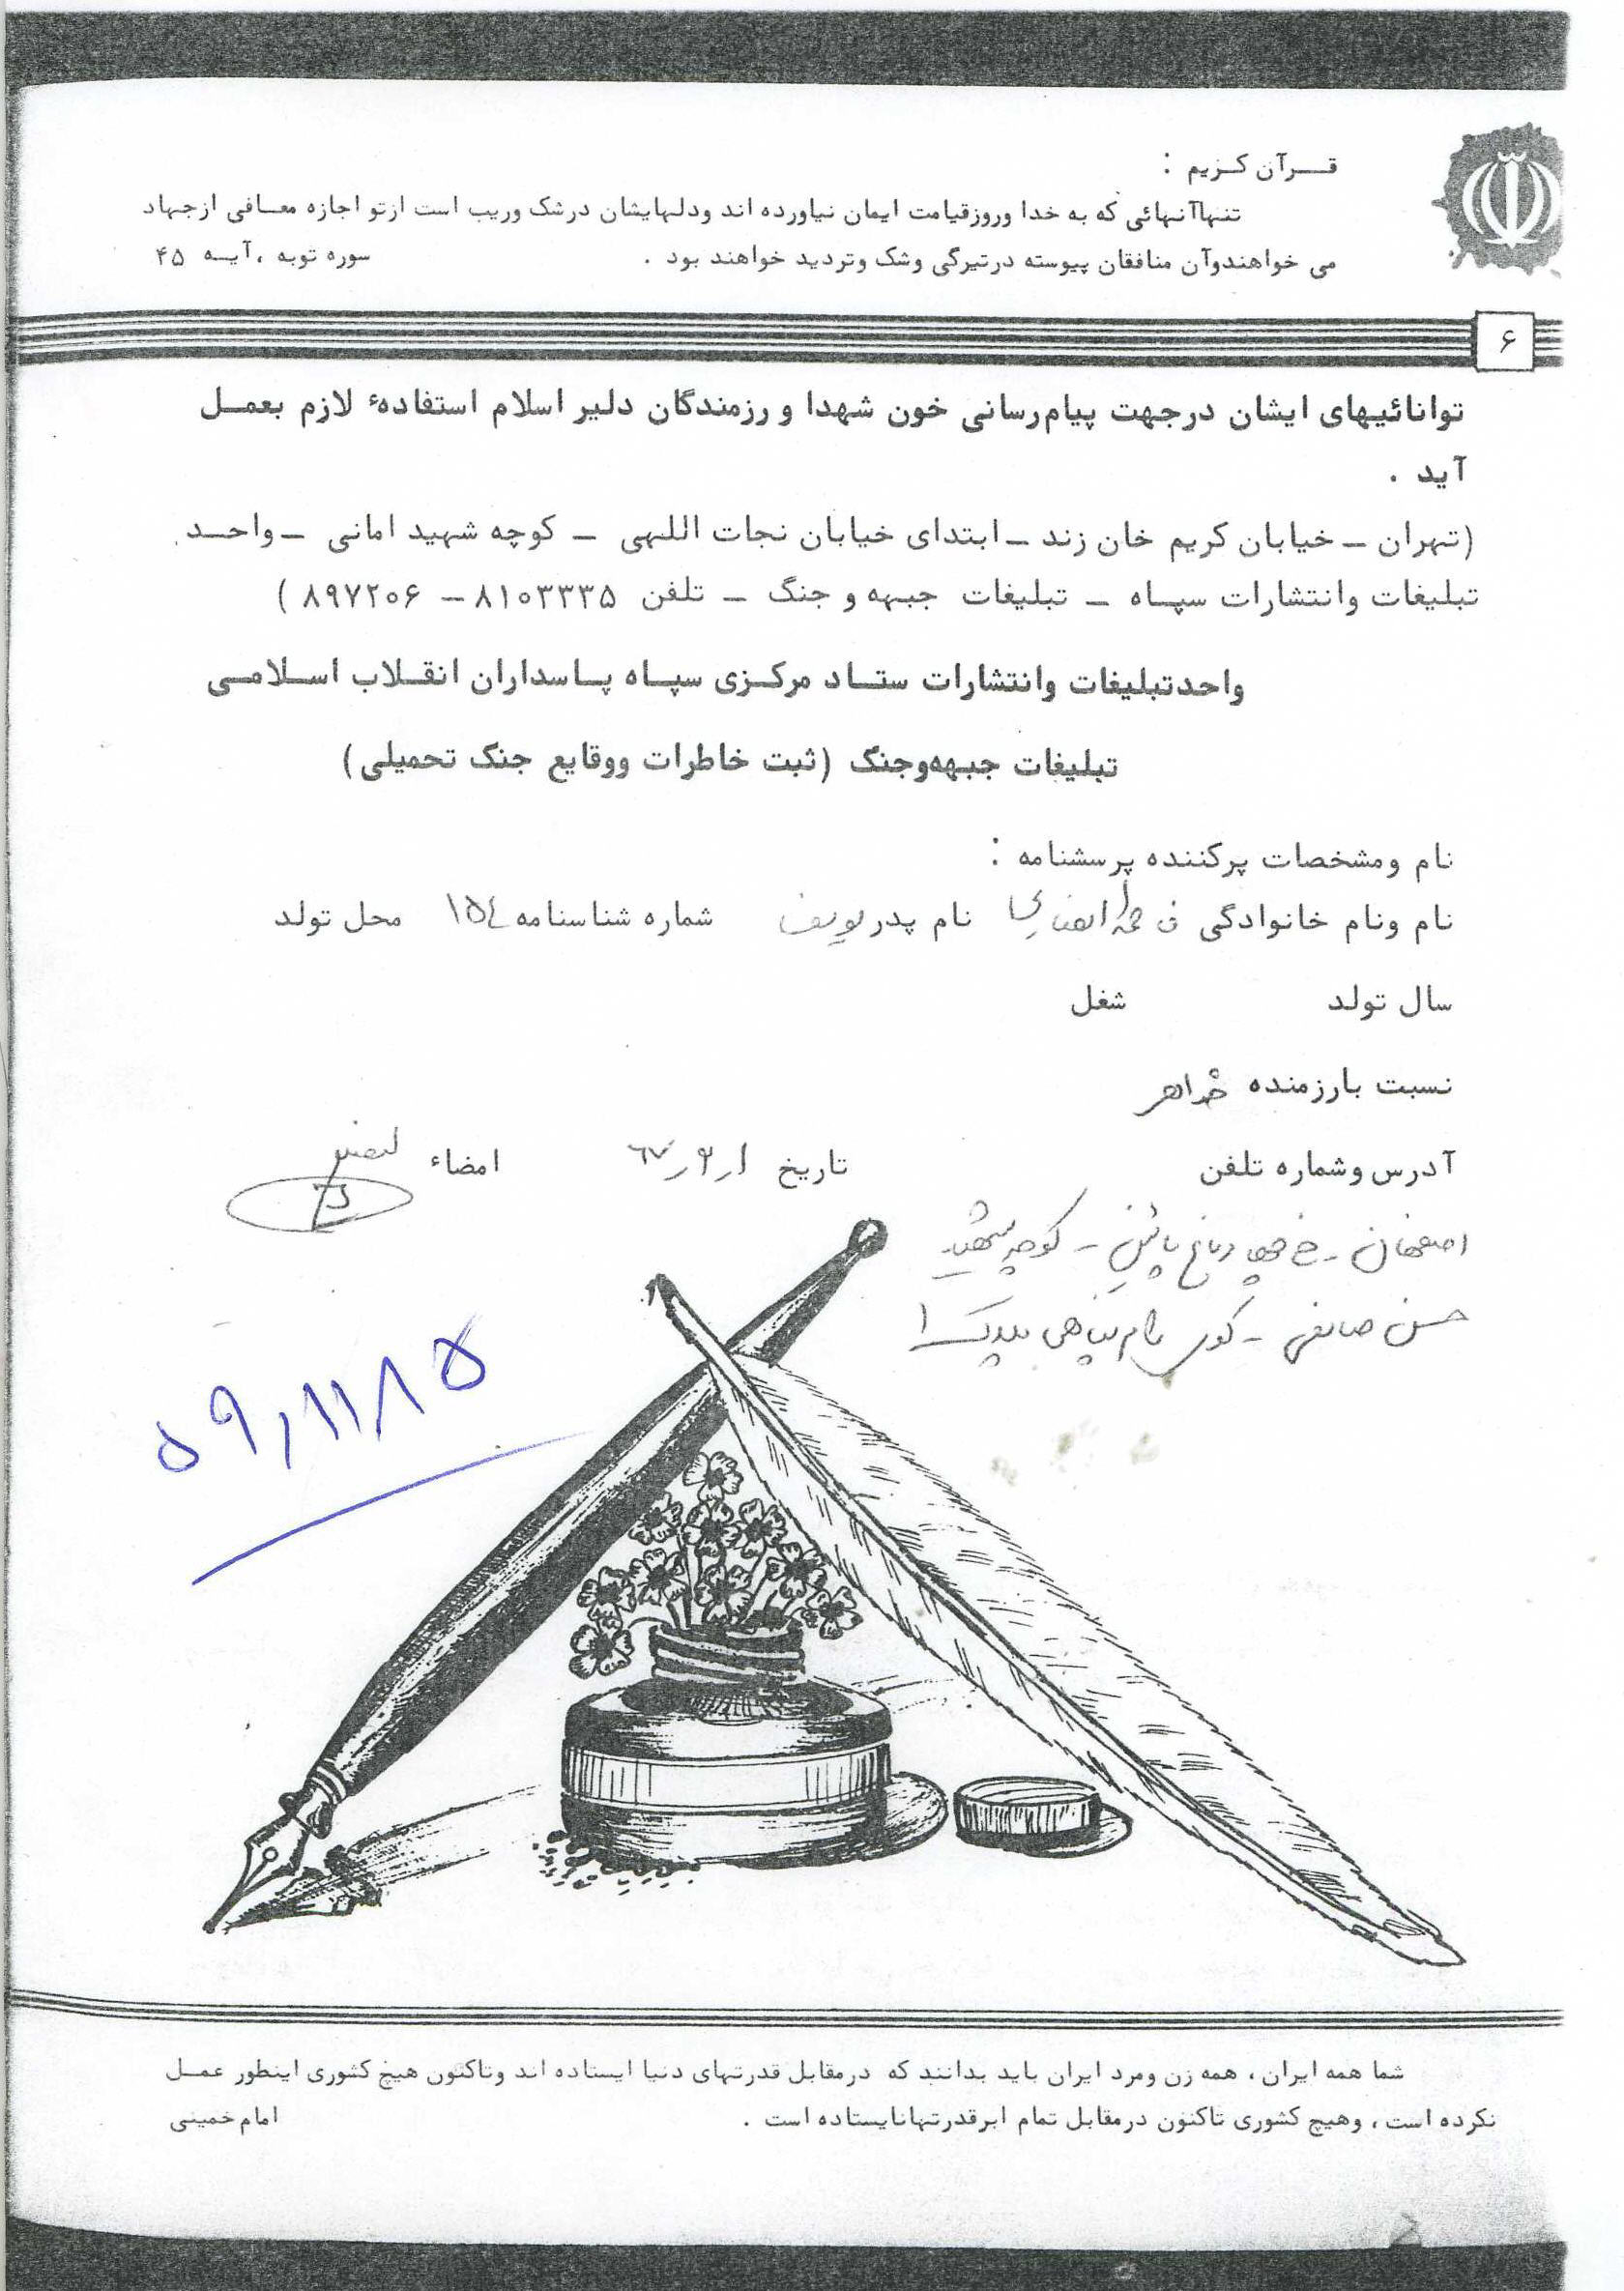 قـــرآن کـزیم :
تنهاآنهائی که به خدا وروزقیامت ایمان نیاورده اند ودلهایشان درشک وریب است ازتو اجازه معـافی ازجهاد
می خواهندوآن منافقان پیوسته درتیرگی وشک وتردید خواهند بود . سوره توبه ، آیـه ۴۵
۶
توانائیهای ایشان درجهت پیام‌رسانی خون شهدا و رزمندگان دلیر اسلام استفادهٔ لازم بعمـل
آید .
(تهران ــ خیابان کریم خان زند ــ ابتدای خیابان نجات اللهی ــ کوچه شهید امانی ــ واحـد
تبلیغات وانتشارات سپـاه ــ تبلیغات جبهه و جنگ ــ تلفن ۸۱۰۳۳۳۵ ــ ۸۹۷۲۰۶ )
واحدتبلیغات وانتشارات ستـاد مرکـزی سپـاه پـاسداران انقـلاب اسـلامـی
تبلیغات جبهه‌وجنگ (ثبت خاطرات ووقایع جنک تحمیلی)
نام ومشخصات پرکننده پرسشنامه :
نام ونام خانوادگی نام پدر یوسف شماره شناسنامه ۱۵۴ محل تولد
سال تولد شغل
نسبت بارزمنده خواهر
آدرس وشماره تلفن تاریخ ۱ر۲ر۶۷ امضاء
اصفهان ـ خ چهارباغ پائین ـ کوچه شهید
حسن صانعی ـ کوی پلاک ۱
۵۹,۱۱۸۵
شما همه ایران ، همه زن ومرد ایران باید بدانند که درمقابل قدرتهای دنیا ایستاده اند وتاکنون هیچ کشوری اینطور عمـل
نکرده است ، وهیچ کشوری تاکنون درمقابل تمام ابرقدرتهانایستاده است . امام خمینی